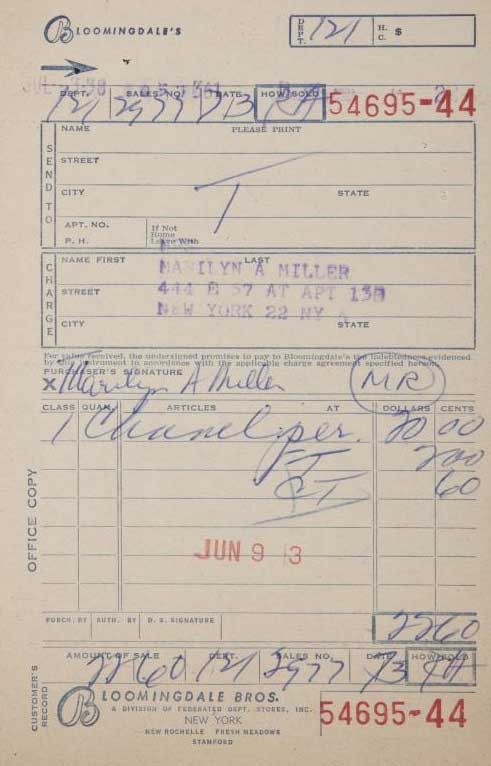 BLOOMINGDALE'S
DEPT. 121 H. C. $
DEPT. SALES NO. DATE HOW SOLD
121 2977 7/3 54695-44
SEND TO
NAME PLEASE PRINT
STREET
CITY STATE
APT. NO. If Not
Home
P. H. Leave With
CHARGE
NAME FIRST LAST
MARILYN A MILLER
STREET 444 E 57 AT APT 13
NEW YORK 22 NY
CITY STATE
For value received, the undersigned promises to pay to Bloomingdale's the indebtedness evidenced
by this instrument in accordance with the applicable charge agreement specified herein.
PURCHASER'S SIGNATURE
X Marilyn A Miller MR
CLASS QUAN. ARTICLES AT DOLLARS CENTS
1 Chanel per. 20 00
FT 200
CT 60
OFFICE COPY
JUN 9 3
PURCH. BY AUTH. BY D. S. SIGNATURE
2260
AMOUNT OF SALE DEPT. SALES NO. DATE HOW SOLD
2260 121 2977 7/3
CUSTOMER'S RECORD
BLOOMINGDALE BROS.
A DIVISION OF FEDERATED DEPT. STORES, INC.
NEW YORK
NEW ROCHELLE FRESH MEADOWS
STAMFORD
54695-44